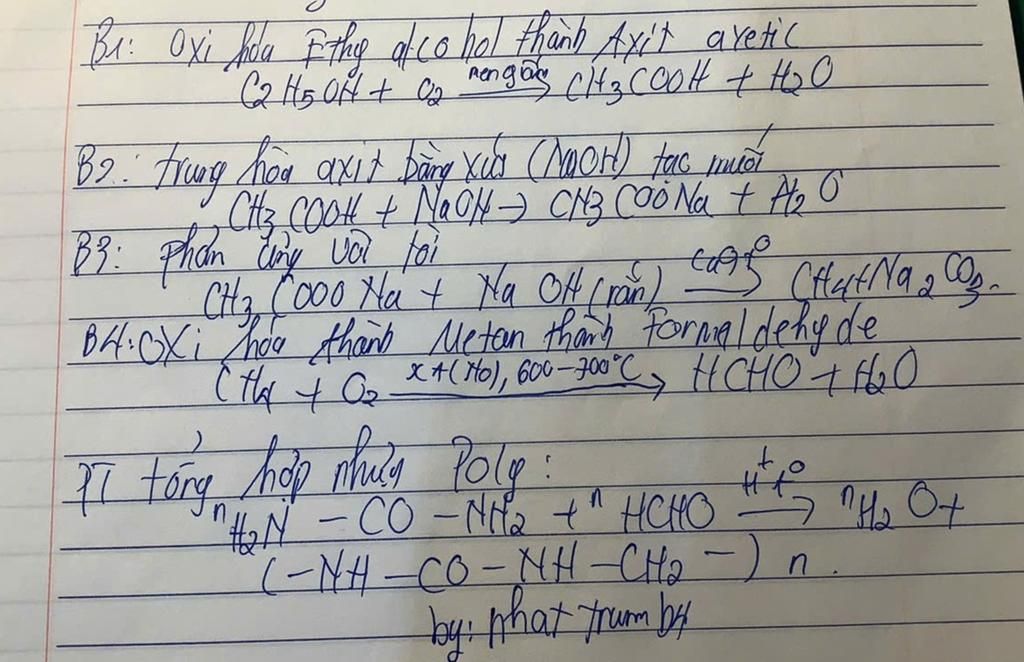 B1: Oxi hóa Ethy alcohol thành Axit axetic
C2H5OH + O2 men giấm → CH3COOH + H2O
B2: trung hòa axit bằng xút (NaOH) tạc muối
CH3COOH + NaOH → CH3COONa + H2O
B3: phản ứng với tôi
CH3COOONa + NaOH (rắn) CaO t° → CH4+Na2CO3.
B4: OXi hóa thành Metan thành Formaldehyde
CH4 + O2 xt(NO), 600-700°C → HCHO + H2O
PT tổng hợp nhựa Poly:
nH2N - CO - NH2 + n HCHO H+ t° → nH2O+
(-NH - CO - NH - CH2 -) n.
by: phat trum b4